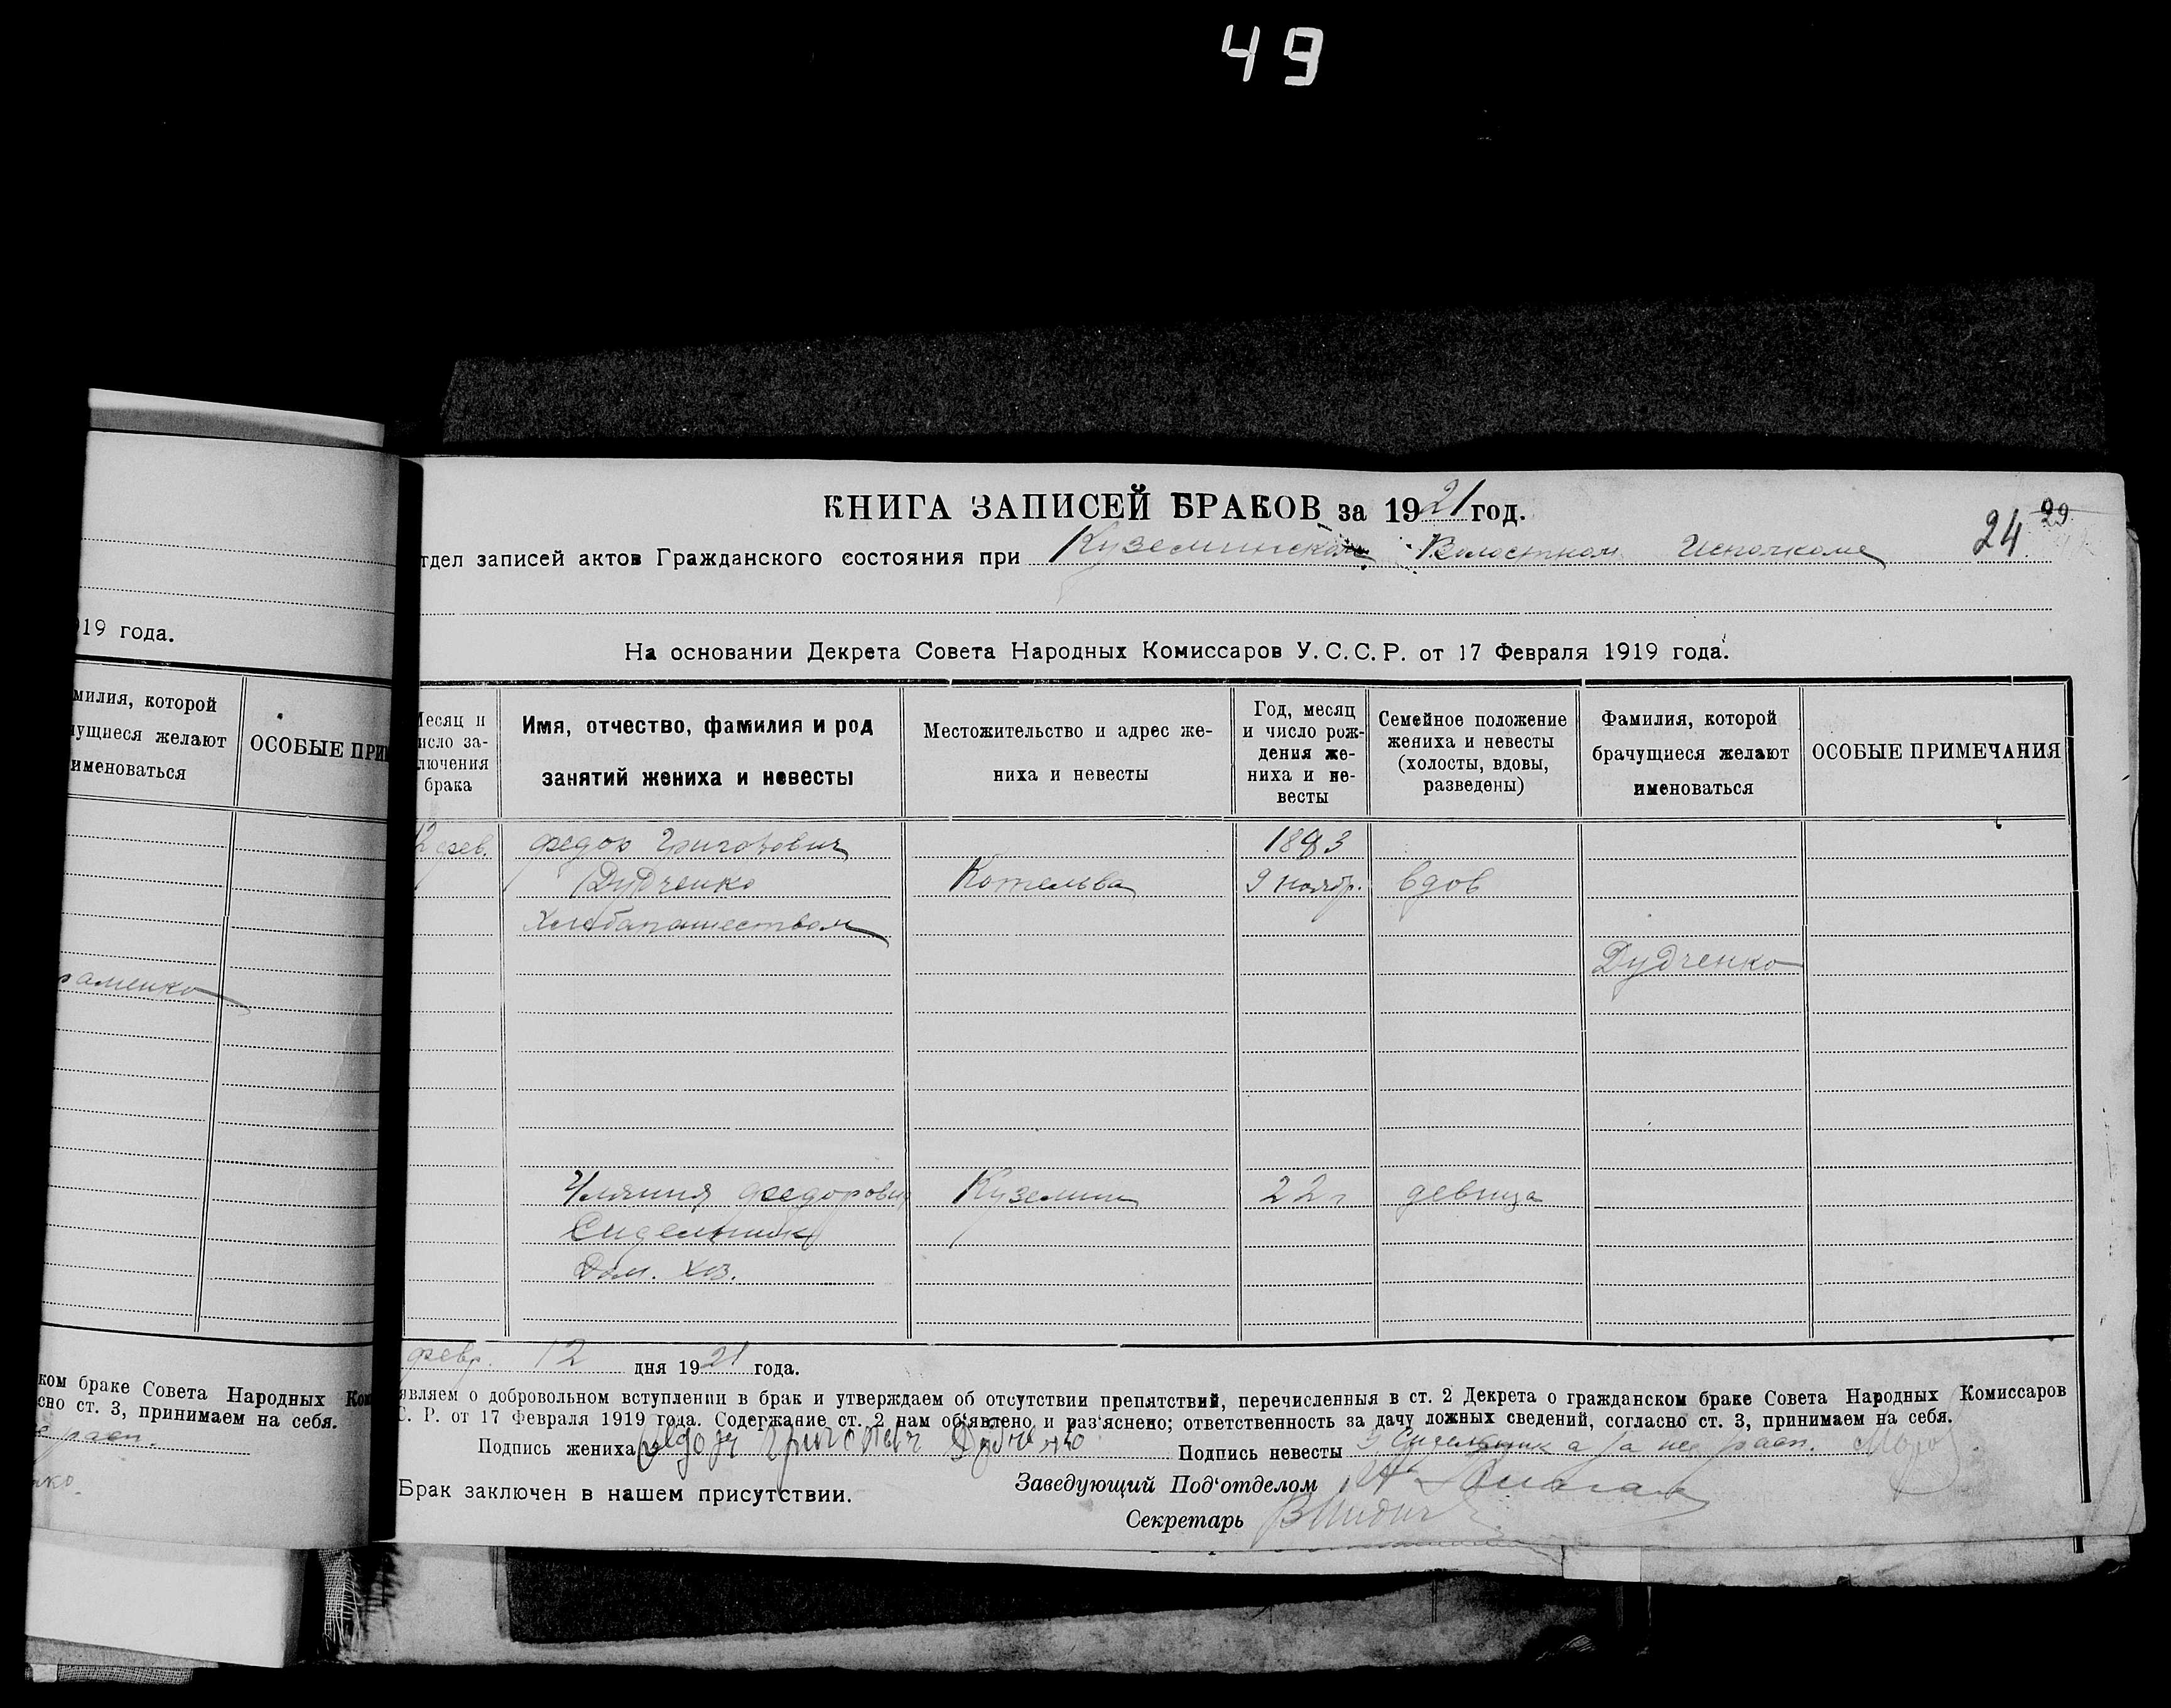 49
КНИГА ЗАПИСЕЙ БРАКОВ за 1921 год.
24 29
тдел записей актов Гражданского состояния при Куземинском Волостном Исполкоме
На основании Декрета Совета Народных Комиссаров У. С. С. Р. от 17 Февраля 1919 года.
19 года.
милия, которой
чущиеся желают
именоваться
ОСОБЫЕ ПРИ
Месяц и
исло за-
лючения
брака
Имя, отчество, фамилия и род
занятий жениха и невесты
Местожительство и адрес же-
ниха и невесты
Год, месяц
и число рож-
дения же-
ниха и не-
весты
Семейное положение
жениха и невесты
(холосты, вдовы,
разведены)
Фамилия, которой
брачущиеся желают
именоваться
ОСОБЫЕ ПРИМЕЧАНИЯ
12 фев. Федор Григорович 1883
Дудченко Котельва 9 ноябр. вдов
Хлебапашеством
Дудченко
раменко
Уляния Федорович Куземин 22 г девица
Сидельник
Дом. хоз.
февр. 12 дня 1921 года.
являем о добровольном вступлении в брак и утверждаем об отсутствии препятствий, перечисленныя в ст. 2 Декрета о гражданском браке Совета Народных Комиссаров
С. Р. от 17 Февраля 1919 года. Содержание ст. 2 нам об'явлено и раз'яснено; ответственность за дачу ложных сведений, согласно ст. 3, принимаем на себя.
Подпись жениха Федор Григорович Дудченко Подпись невесты Сидельник а за нее расп.
Брак заключен в нашем присутствии.
Заведующий Под'отделом
Секретарь
ком браке Совета Народных Ком
сно ст. 3, принимаем на себя.
расп.
нко.